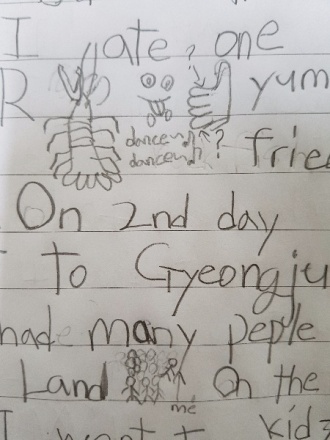 I ate, one
R yum
dancen
dancen ? frie
On 2nd day
to Gyeongju
had many peple
Land On the
me
I want t kids